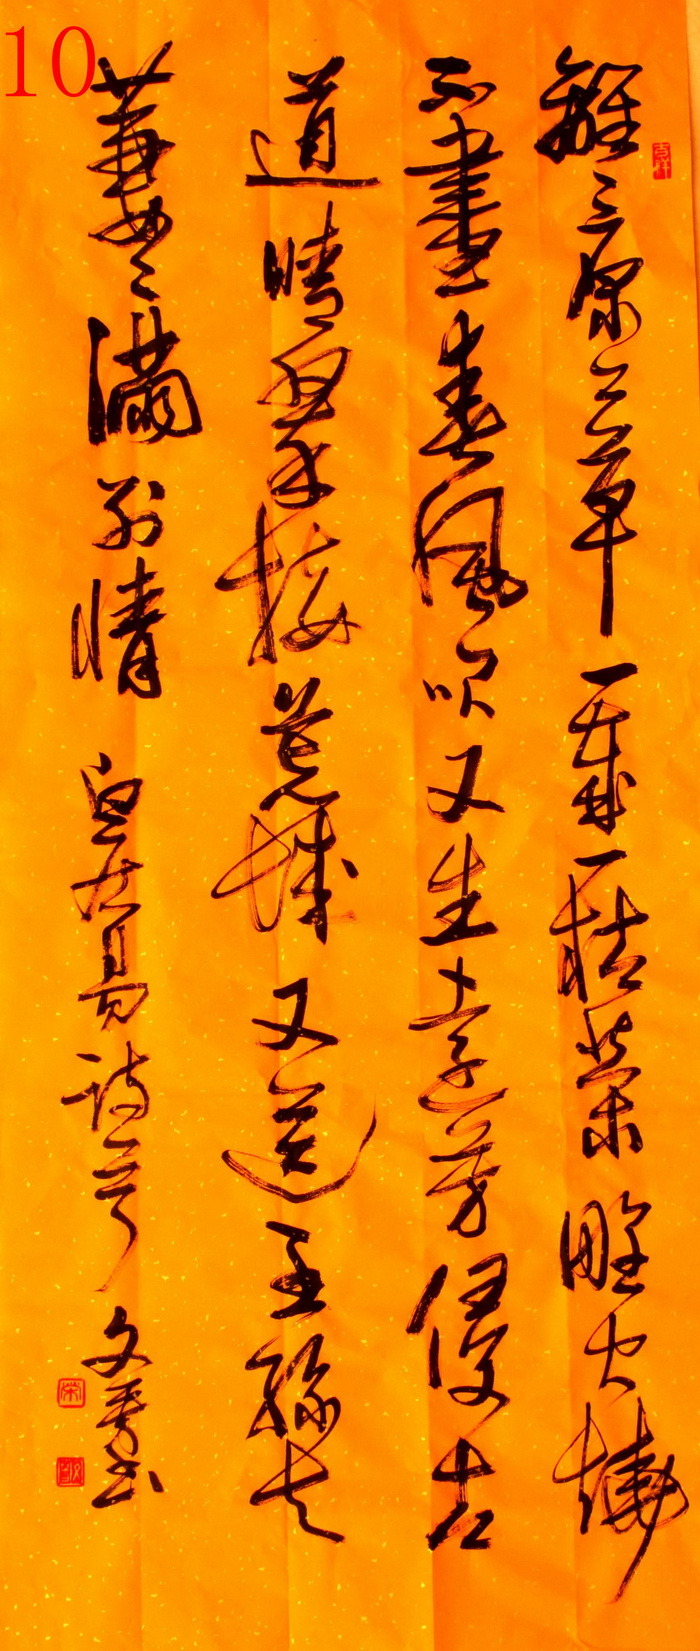 10
離〻原上草一歲一枯榮野火燒
不盡春風吹又生遠芳侵古
道晴翠接荒城又送王孫去
萋〻滿別情 白居易詩一首 文榮書